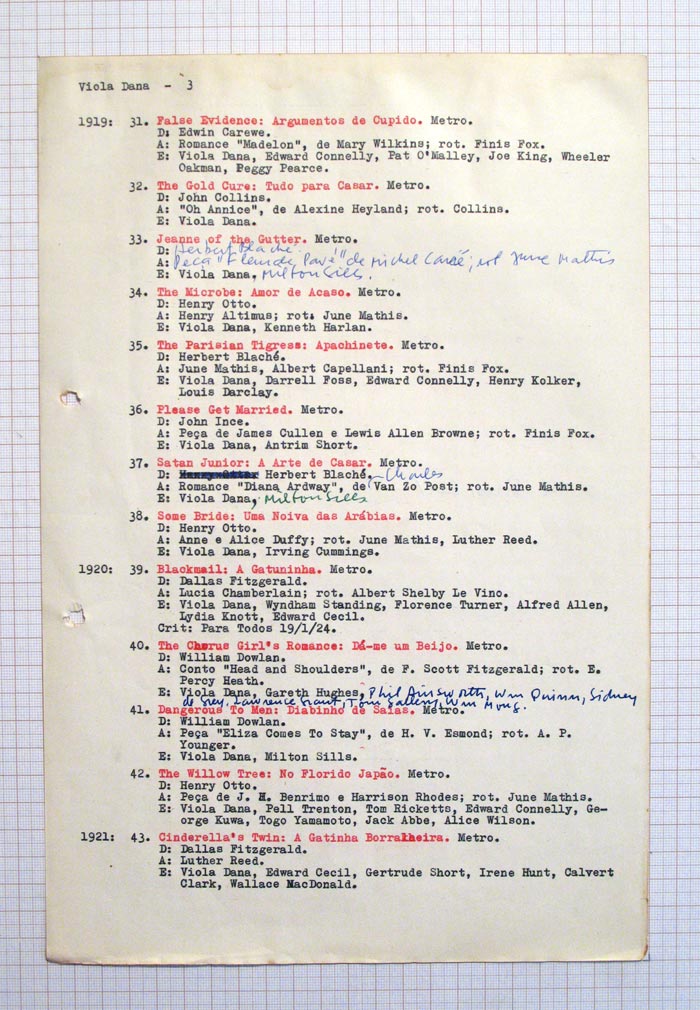 Viola Dana - 3
1919: 31. False Evidence: Argumentos de Cupido. Metro.
D: Edwin Carewe.
A: Romance "Madelon", de Mary Wilkins; rot. Finis Fox.
E: Viola Dana, Edward Connelly, Pat O'Malley, Joe King, Wheeler
Oakman, Peggy Pearce.
32. The Gold Cure: Tudo para Casar. Metro.
D: John Collins.
A: "Oh Annice", de Alexine Heyland; rot. Collins.
E: Viola Dana.
33. Jeanne of the Gutter. Metro.
D: Herbert Blaché.
A: Peça "Fleur de Pavé" de Michel Carré; rot June Mathis
E: Viola Dana, Milton Sills.
34. The Microbe: Amor de Acaso. Metro.
D: Henry Otto.
A: Henry Altimus; rot. June Mathis.
E: Viola Dana, Kenneth Harlan.
35. The Parisian Tigress: Apachinete. Metro.
D: Herbert Blaché.
A: June Mathis, Albert Capellani; rot. Finis Fox.
E: Viola Dana, Darrell Foss, Edward Connelly, Henry Kolker,
Louis Darclay.
36. Please Get Married. Metro.
D: John Ince.
A: Peça de James Cullen e Lewis Allen Browne; rot. Finis Fox.
E: Viola Dana, Antrim Short.
37. Satan Junior: A Arte de Casar. Metro.
D: Herbert Blaché. Charles
A: Romance "Diana Ardway", de Van Zo Post; rot. June Mathis.
E: Viola Dana, Milton Sills
38. Some Bride: Uma Noiva das Arábias. Metro.
D: Henry Otto.
A: Anne e Alice Duffy; rot. June Mathis, Luther Reed.
E: Viola Dana, Irving Cummings.
1920: 39. Blackmail: A Gatuninha. Metro.
D: Dallas Fitzgerald.
A: Lucia Chamberlain; rot. Albert Shelby Le Vino.
E: Viola Dana, Wyndham Standing, Florence Turner, Alfred Allen,
Lydia Knott, Edward Cecil.
Crit: Para Todos 19/1/24.
40. The Chorus Girl's Romance: Dá-me um Beijo. Metro.
D: William Dowlan.
A: Conto "Head and Shoulders", de F. Scott Fitzgerald; rot. E.
Percy Heath.
E: Viola Dana, Gareth Hughes, Phil Ainsworth, Wm Quinn, Sidney
de Grey, Lawrence Grant, Tom Gallery, Wm Mong.
41. Dangerous To Men: Diabinho de Saias. Metro.
D: William Dowlan.
A: Peça "Eliza Comes To Stay", de H. V. Esmond; rot. A. P.
Younger.
E: Viola Dana, Milton Sills.
42. The Willow Tree: No Florido Japão. Metro.
D: Henry Otto.
A: Peça de J. H. Benrimo e Harrison Rhodes; rot. June Mathis.
E: Viola Dana, Pell Trenton, Tom Ricketts, Edward Connelly, Ge-
orge Kuwa, Togo Yamamoto, Jack Abbe, Alice Wilson.
1921: 43. Cinderella's Twin: A Gatinha Borralheira. Metro.
D: Dallas Fitzgerald.
A: Luther Reed.
E: Viola Dana, Edward Cecil, Gertrude Short, Irene Hunt, Calvert
Clark, Wallace MacDonald.